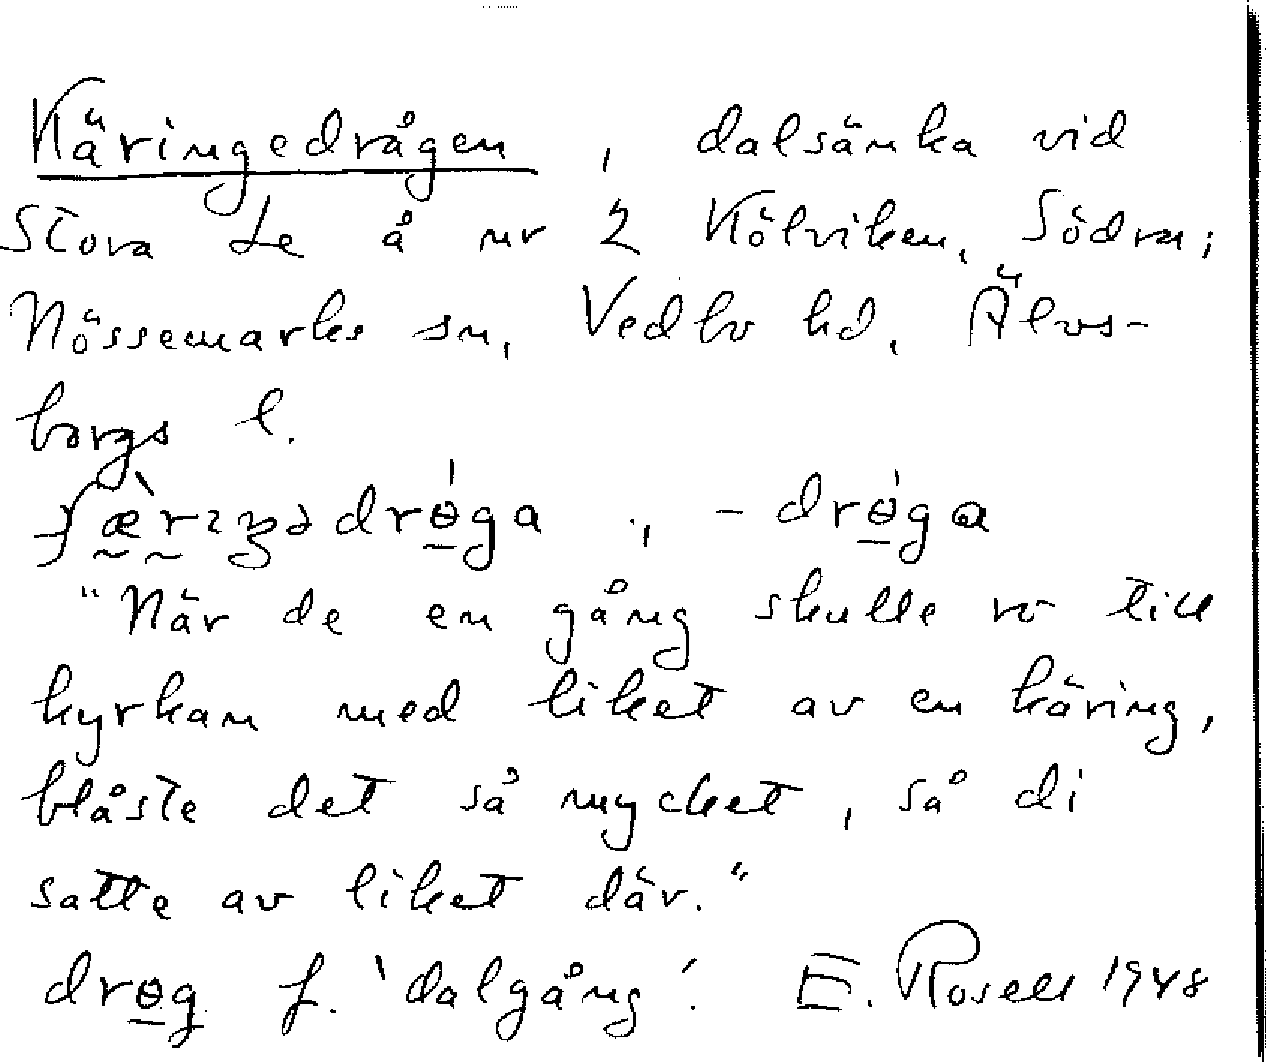 Käringedrågen, dalsänka vid
Stora Le å nr 2 Kölviken, Södra;
Nössemarks sn, Vedbo hd, Älvs-
borgs l.
drɵ́ga, -drɵ́gɑ
"När de en gång skulle ro till
kyrkan med liket av en käring,
blåste det så mycket, så di
satte av liket där."
drɵg f. 'dalgång'. E. Rosell 1948